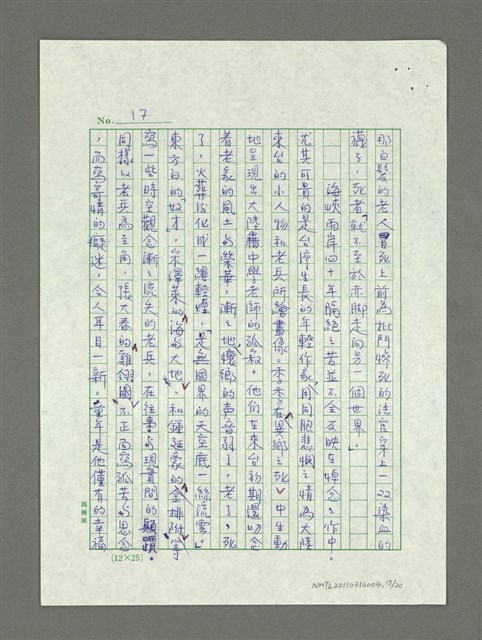 No. 17
那白髮的老人冒死上前為批鬥慘死的法官穿上一双染血的
襪子,死者「就不至於赤脚走向另一個世界」。
海峽兩岸四十年隔絕之苦並不全反映在悼念之作中。
尤其可貴的是台灣生長的年輕作家,同同胞悲憫之情為大陸
來台的小人物和老兵所繪畫像。李喬在異鄉之死中生動
地呈現出大陸籍中學老師的孤寂。他們在來台初期還叨念
者老家的風土與榮華,漸漸地懷鄉的声音弱了,老了,死
了,火葬後化成一縷輕煙,「是無國界的天空底一絲流雲」。
東方白的「奴才」,宋澤萊的海與大地、和鍾延豪的金排附等
寫一些時空觀念漸漸流失的老兵,在往事與現實間的顛躓。
同樣以老兵為主角,張大春的雞翎圖不正面寫孤苦與思念
,而寫寄情的癡迷,令人耳目一新。童年是他僅有的幸福
(12×25)
NMTL20110310004.17/20